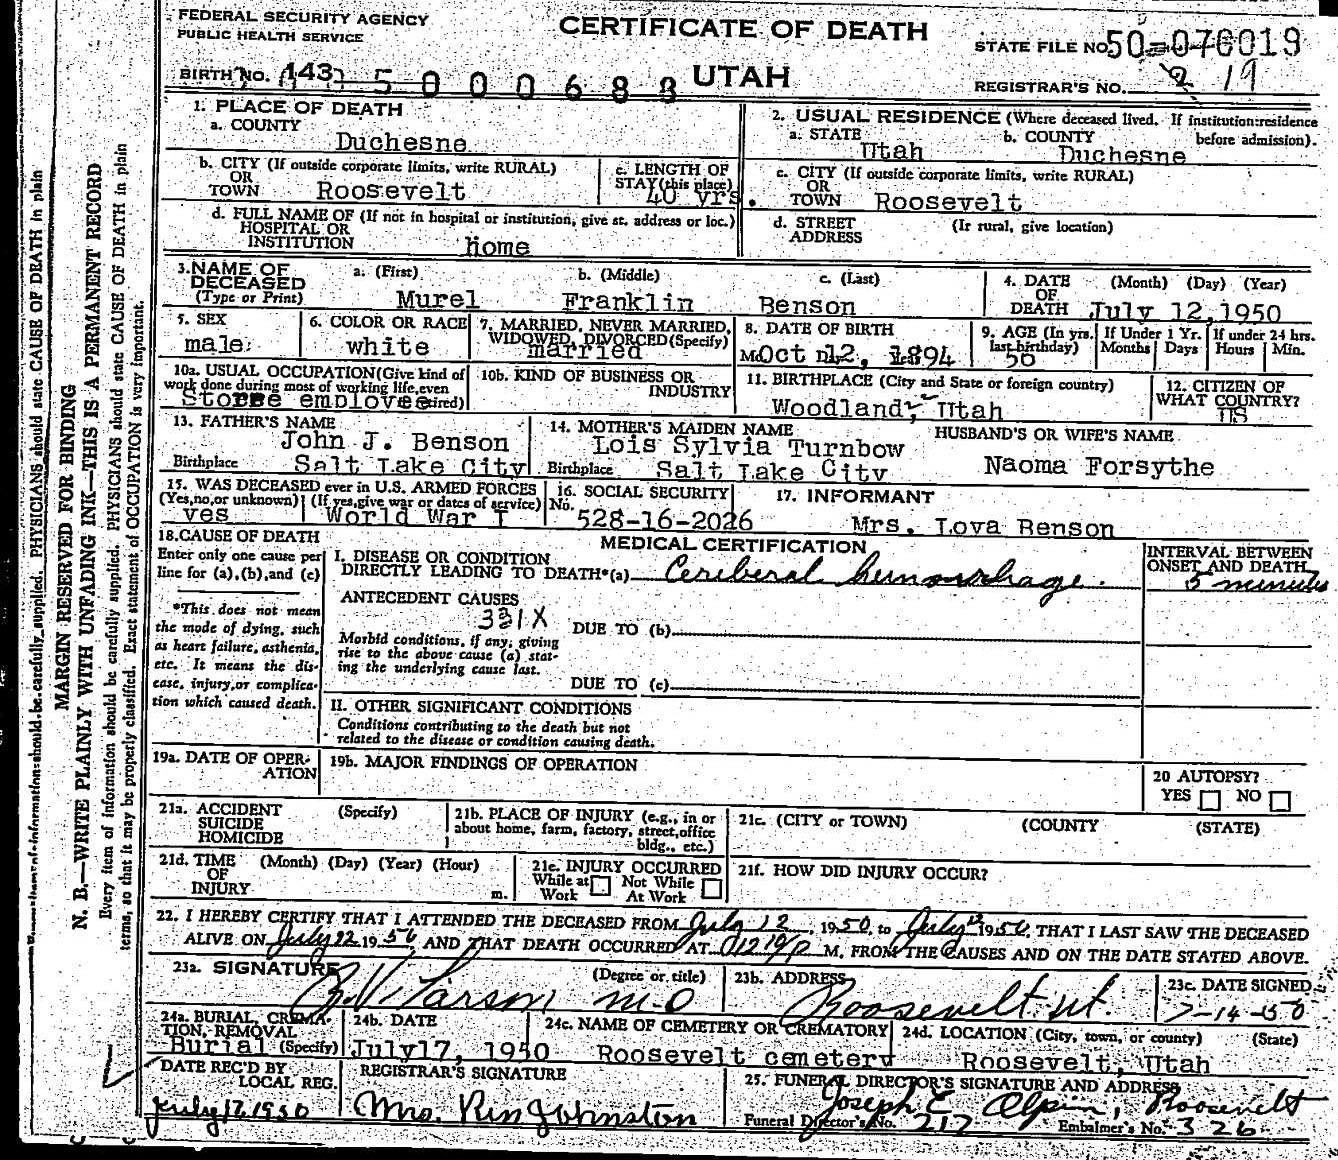 FEDERAL SECURITY AGENCY
PUBLIC HEALTH SERVICE
CERTIFICATE OF DEATH
STATE FILE NO. 50-076019
BIRTH NO. 143 5000688
UTAH
REGISTRAR'S NO. 19
1. PLACE OF DEATH
a. COUNTY
Duchesne
2. USUAL RESIDENCE (Where deceased lived. If institution:residence before admission).
a. STATE Utah b. COUNTY Duchesne
b. CITY (If outside corporate limits, write RURAL)
OR
TOWN Roosevelt
c. LENGTH OF
STAY (this place)
40 yrs.
c. CITY (If outside corporate limits, write RURAL)
OR
TOWN Roosevelt
d. FULL NAME OF (If not in hospital or institution, give st. address or loc.)
HOSPITAL OR
INSTITUTION home
d. STREET (If rural, give location)
ADDRESS
3. NAME OF DECEASED
(Type or Print)
a. (First) b. (Middle) c. (Last)
Murel Franklin Benson
4. DATE (Month) (Day) (Year)
OF
DEATH July 12, 1950
5. SEX
male
6. COLOR OR RACE
white
7. MARRIED, NEVER MARRIED,
WIDOWED, DIVORCED (Specify)
married
8. DATE OF BIRTH
Oct 12, 1894
9. AGE (In yrs. last birthday)
If Under 1 Yr. If under 24 hrs.
Months Days Hours Min.
10a. USUAL OCCUPATION (Give kind of
work done during most of working life, even
Store employee
10b. KIND OF BUSINESS OR
INDUSTRY
11. BIRTHPLACE (City and State or foreign country)
Woodland, Utah
12. CITIZEN OF
WHAT COUNTRY?
US
13. FATHER'S NAME
John J. Benson
Birthplace Salt Lake City
14. MOTHER'S MAIDEN NAME
Lois Sylvia Turnbow
Birthplace Salt Lake City
HUSBAND'S OR WIFE'S NAME
Naoma Forsythe
15. WAS DECEASED ever in U.S. ARMED FORCES
(Yes, no, or unknown) (If yes, give war or dates of service)
yes World War I
16. SOCIAL SECURITY
No.
528-16-2026
17. INFORMANT
Mrs. Lova Benson
18. CAUSE OF DEATH
Enter only one cause per
line for (a), (b), and (c)
*This does not mean
the mode of dying, such
as heart failure, asthenia,
etc. It means the dis-
ease, injury, or complica-
tion which caused death.
MEDICAL CERTIFICATION
I. DISEASE OR CONDITION
DIRECTLY LEADING TO DEATH*(a) Cereberal hemorrhage.
INTERVAL BETWEEN
ONSET AND DEATH
5 minutes
ANTECEDENT CAUSES
331X
DUE TO (b)
Morbid conditions, if any, giving
rise to the above cause (a) stat-
ing the underlying cause last.
DUE TO (c)
II. OTHER SIGNIFICANT CONDITIONS
Conditions contributing to the death but not
related to the disease or condition causing death.
19a. DATE OF OPER-
ATION
19b. MAJOR FINDINGS OF OPERATION
20 AUTOPSY?
YES NO
21a. ACCIDENT (Specify)
SUICIDE
HOMICIDE
21b. PLACE OF INJURY (e.g., in or
about home, farm, factory, street, office
bldg., etc.)
21c. (CITY or TOWN) (COUNTY (STATE)
21d. TIME (Month) (Day) (Year) (Hour)
OF
INJURY m.
21e. INJURY OCCURRED
While at Work Not While At Work
21f. HOW DID INJURY OCCUR?
22. I HEREBY CERTIFY THAT I ATTENDED THE DECEASED FROM July 12, 1950, to July 12 1950, THAT I LAST SAW THE DECEASED
ALIVE ON July 12 1950, AND THAT DEATH OCCURRED AT M, FROM THE CAUSES AND ON THE DATE STATED ABOVE.
23a. SIGNATURE (Degree or title)
Larson M.D
23b. ADDRESS
Roosevelt Ut.
23c. DATE SIGNED
7-14-50
24a. BURIAL, CREMA-
TION, REMOVAL
Burial (Specify)
24b. DATE
July 17, 1950
24c. NAME OF CEMETERY OR CREMATORY
Roosevelt cemetery
24d. LOCATION (City, town, or county) (State)
Roosevelt, Utah
DATE REC'D BY
LOCAL REG.
July 17, 1950
REGISTRAR'S SIGNATURE
Mrs. Johnston
25. FUNERAL DIRECTOR'S SIGNATURE AND ADDRESS
Joseph E Olpin, Roosevelt
Funeral Director's No. 217 Embalmer's No. 326
MARGIN RESERVED FOR BINDING
N. B.—WRITE PLAINLY WITH UNFADING INK—THIS IS A PERMANENT RECORD
Every item of information should be carefully supplied. PHYSICIANS should state CAUSE OF DEATH in plain
terms, so that it may be properly classified. Exact statement of OCCUPATION is very important.
should be carefully supplied. PHYSICIANS should state CAUSE OF DEATH in plain